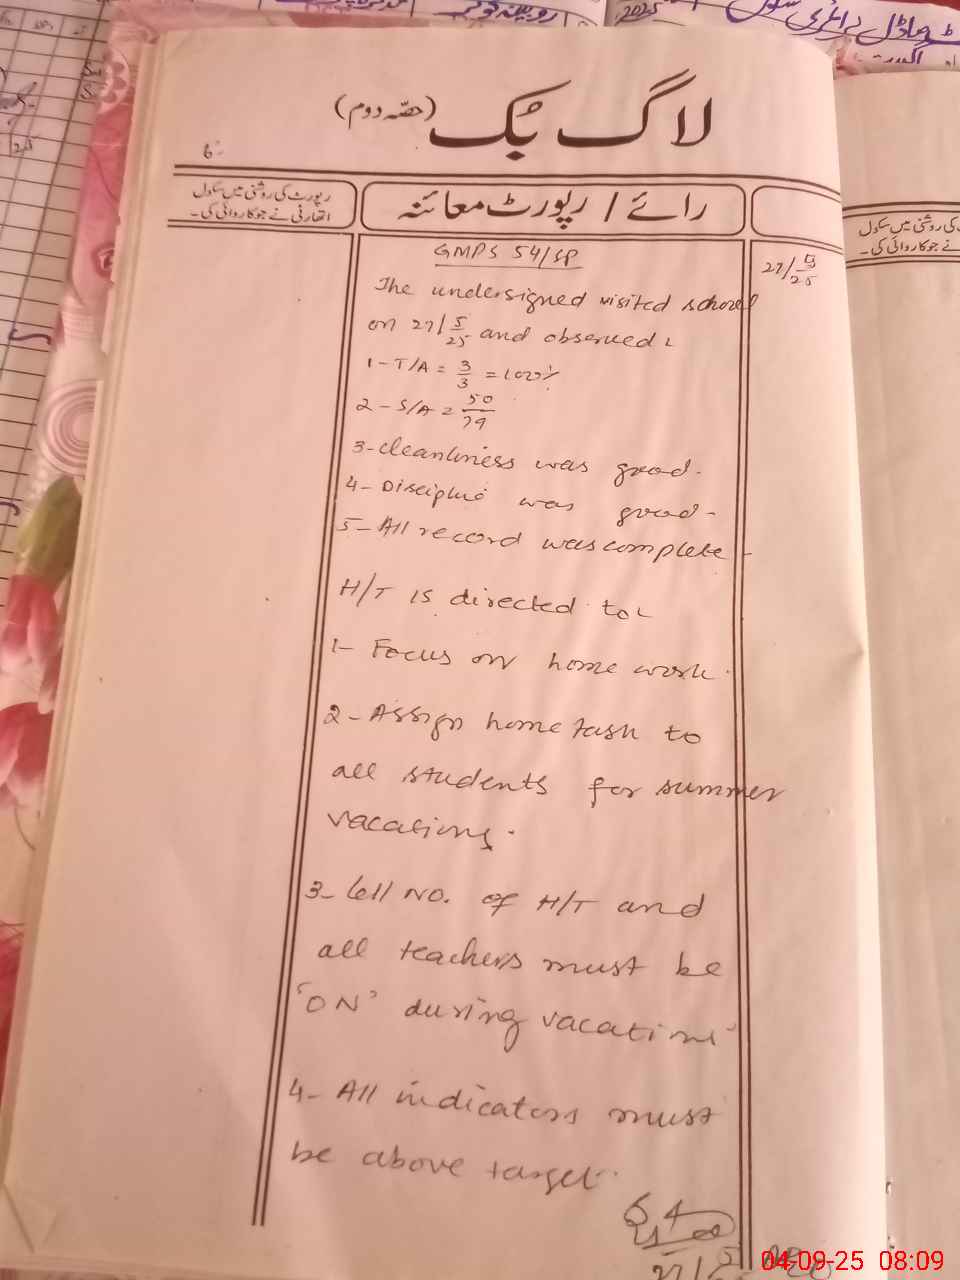 روبینہ کوثر
2025
لاگ بک (حصّہ دوم)
رپورٹ کی روشنی میں سکول
اتھارٹی نے جو کاروائی کی۔
رائے / رپورٹ معائنہ
GMPS 54/SP
27/5/25
The undersigned visited school
on 27/5/25 and observed :
1- T/A = 3/3 = 100%
2- S/A = 50/79
3- cleanliness was good.
4- Discipline was good.
5- All record was complete.
H/T is directed to :
1- Focus on home work.
2- Assign home task to
all students for summer
vacations.
3- Cell NO. of H/T and
all teachers must be
'ON' during vacations
4- All indicators must
be above target.
27/5
AEO
کی روشنی میں سکول
نے جو کاروائی کی۔
04-09-25 08:09